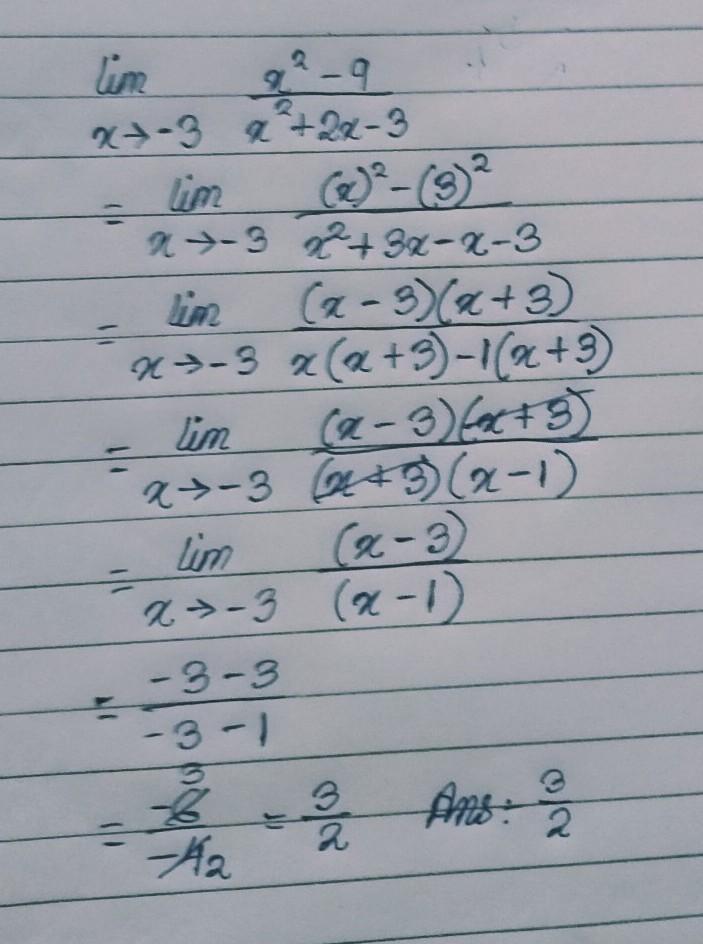 lim x→-3 (x² - 9)/(x² + 2x - 3)
= lim x→-3 ((x)² - (3)²)/(x² + 3x - x - 3)
= lim x→-3 ((x - 3)(x + 3))/(x(x + 3) - 1(x + 3))
= lim x→-3 ((x - 3)(x + 3))/((x + 3)(x - 1))
= lim x→-3 (x - 3)/(x - 1)
= (-3 - 3)/(-3 - 1)
= -6 3/-4 2 = 3/2 Ans: 3/2